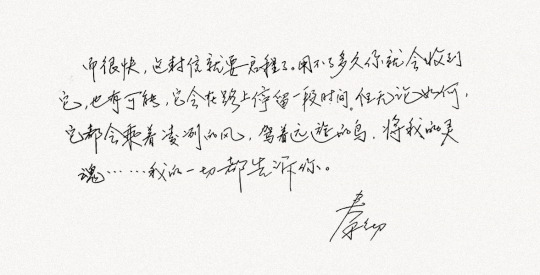 而很快，这封信就要启程了。用不了多久你就会收到
它，也有可能，它会在路上停留一段时间。但无论如何，
它都会乘着凌冽的风，驾着远遊的鸟，将我的灵
魂……我的一切都告诉你。
秦幼